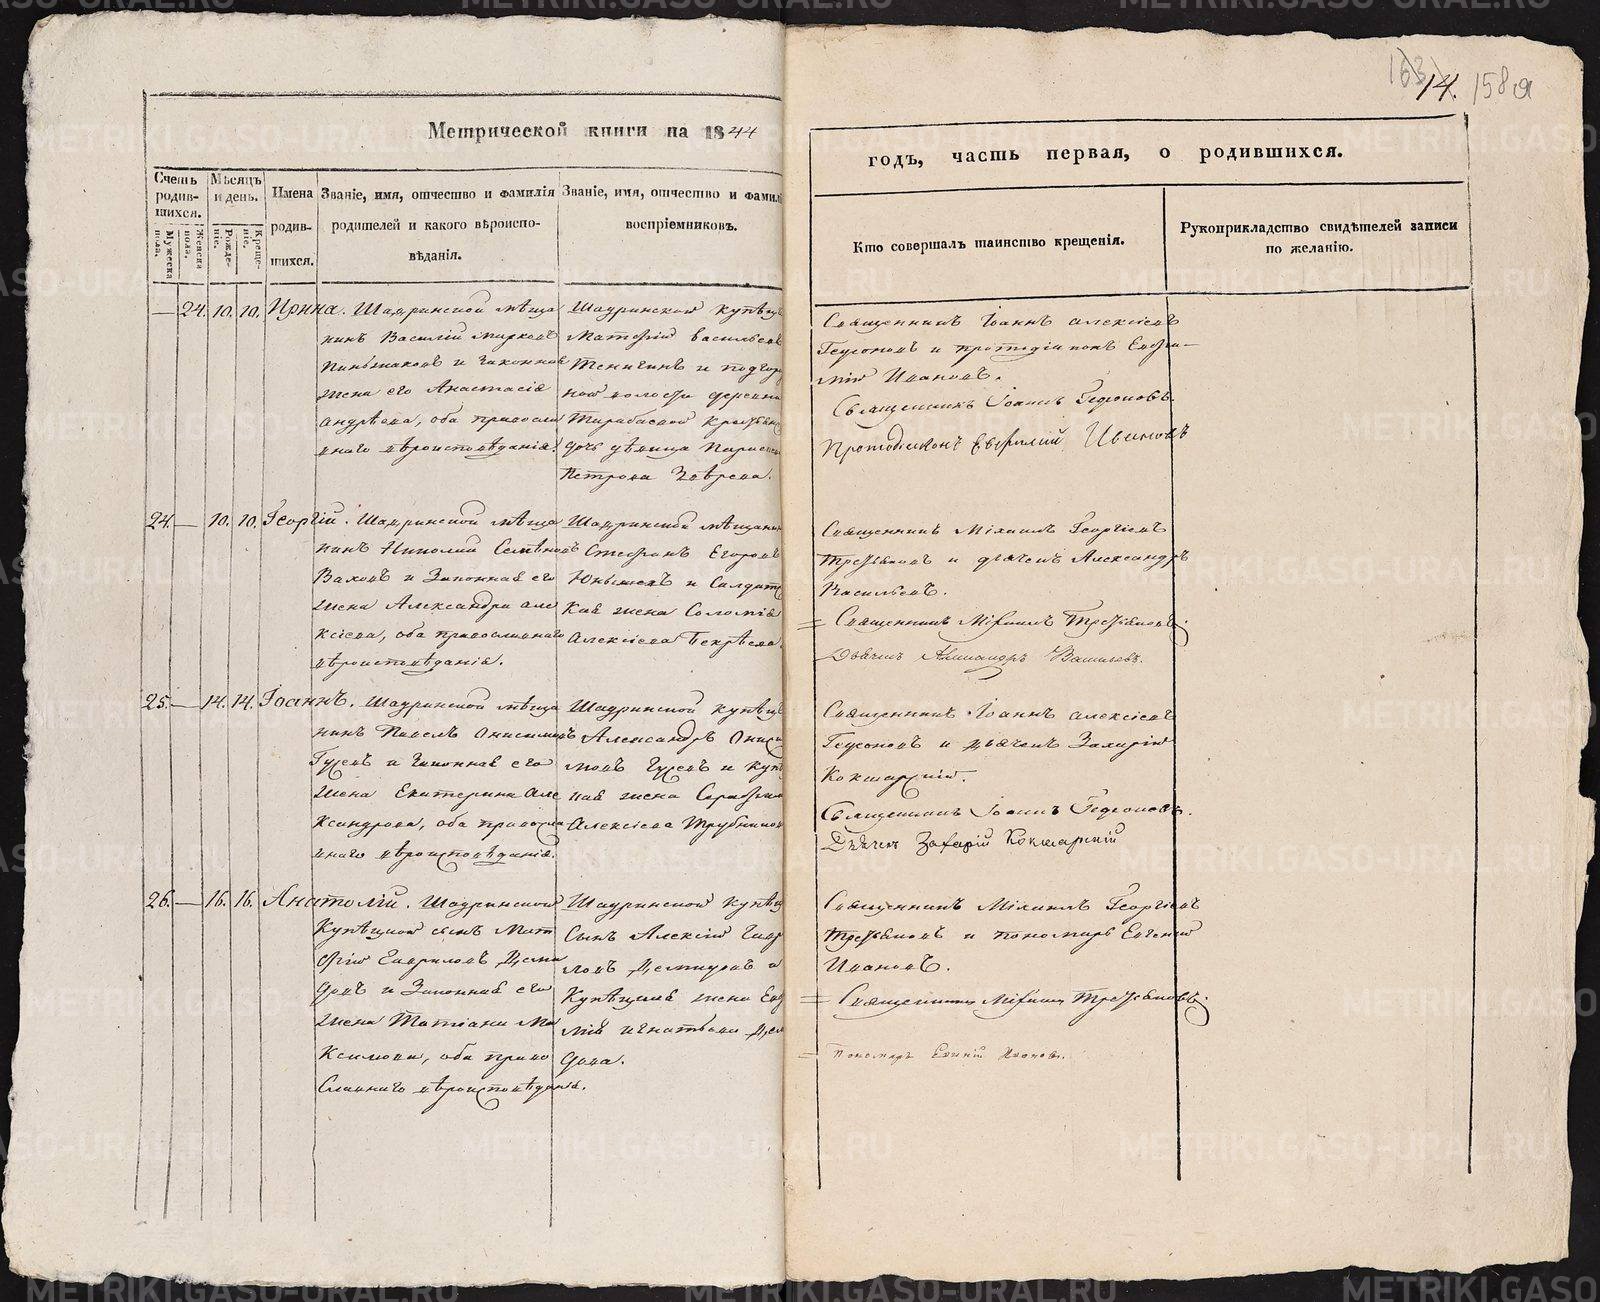 14. 158
Метрической книги на 1844
годъ, часть первая, о родившихся.
Счетъ родившихся.
Мужеска пола.
Женска пола.
Мѣсяцъ и день.
Рожденіе.
Крещеніе.
Имена родившихся.
Званіе, имя, отчество и фамилія родителей и какого вѣроисповѣданія.
Званіе, имя, отчество и фамил
воспріемниковъ.
Кто совершалъ таинство крещенія.
Рукоприкладство свидѣтелей записи
по желанію.
— 24. 10. 10. Ирина. Шадринской мѣща
нинъ Василій Марковъ
и законная
жена его Анастасія
Андрѣева, оба правосла
внаго вѣроисповѣданія.
Шадринской купѣцъ
Матѳій Васильевъ
и подгор
ной волости деревни
крестьянс
дочь дѣвица
Петрова Звѣрева.
Священникъ Іоаннъ Алексіевъ
Гедеоновъ и протодіаконъ Евфи-
мій Ивановъ.
Священникъ Іоаннъ Гедеоновъ.
Протодіаконъ Евфимій Ивановъ
24. — 10. 10. Георгій. Шадринской мѣща
нинъ Николай Семеновъ
и законная его
жена Александра Але
ксіева, оба православнаго
вѣроисповѣданія.
Шадринской мѣщанин
Стефанъ Егоровъ
и Солдатс
кая жена Соломія
Алексіева
Священникъ Михаилъ Георгіевъ
Третьяковъ и дьячекъ Александръ
Васильевъ.
Священникъ Михаилъ Третьяковъ.
Дьячекъ Александръ Васильевъ.
25. — 14. 14. Іоаннъ. Шадринской мѣща
нинъ Павелъ Онисимовъ
Гусевъ и законная его
жена Екатерина Але
ксандрова, оба правосла
внаго вѣроисповѣданія.
Шадринской купѣцъ
Александръ Ониси
мовъ Гусевъ и
жена
Алексіева
Священникъ Іоаннъ Алексіевъ
Гедеоновъ и дьячекъ Захарій
Кокшарскій.
Священникъ Іоаннъ Гедеоновъ.
Дьячекъ Захарій Кокшарскій
26. — 16. 16. Анатолій. Шадринской
Купѣцкой сынъ Мат
ѳій Гавриловъ Деми
довъ и законная его
жена Татіана Ма
ксимова, оба право
славнаго вѣроисповѣданія.
Шадринской купѣц
Сынъ Алексій Гаври
ловъ Демидовъ и
Купѣцкая жена Евф
мія Игнатьева Дем
дова.
Священникъ Михаилъ Георгіевъ
Третьяковъ и пономарь Евгеній
Ивановъ.
Священникъ Михаилъ Третьяковъ.
Пономарь Евгеній Ивановъ.
METRIKI.GASO-URAL.RU